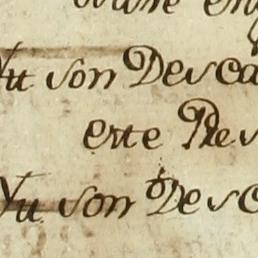 Yu son Desca
erte Res
Yu son Desc